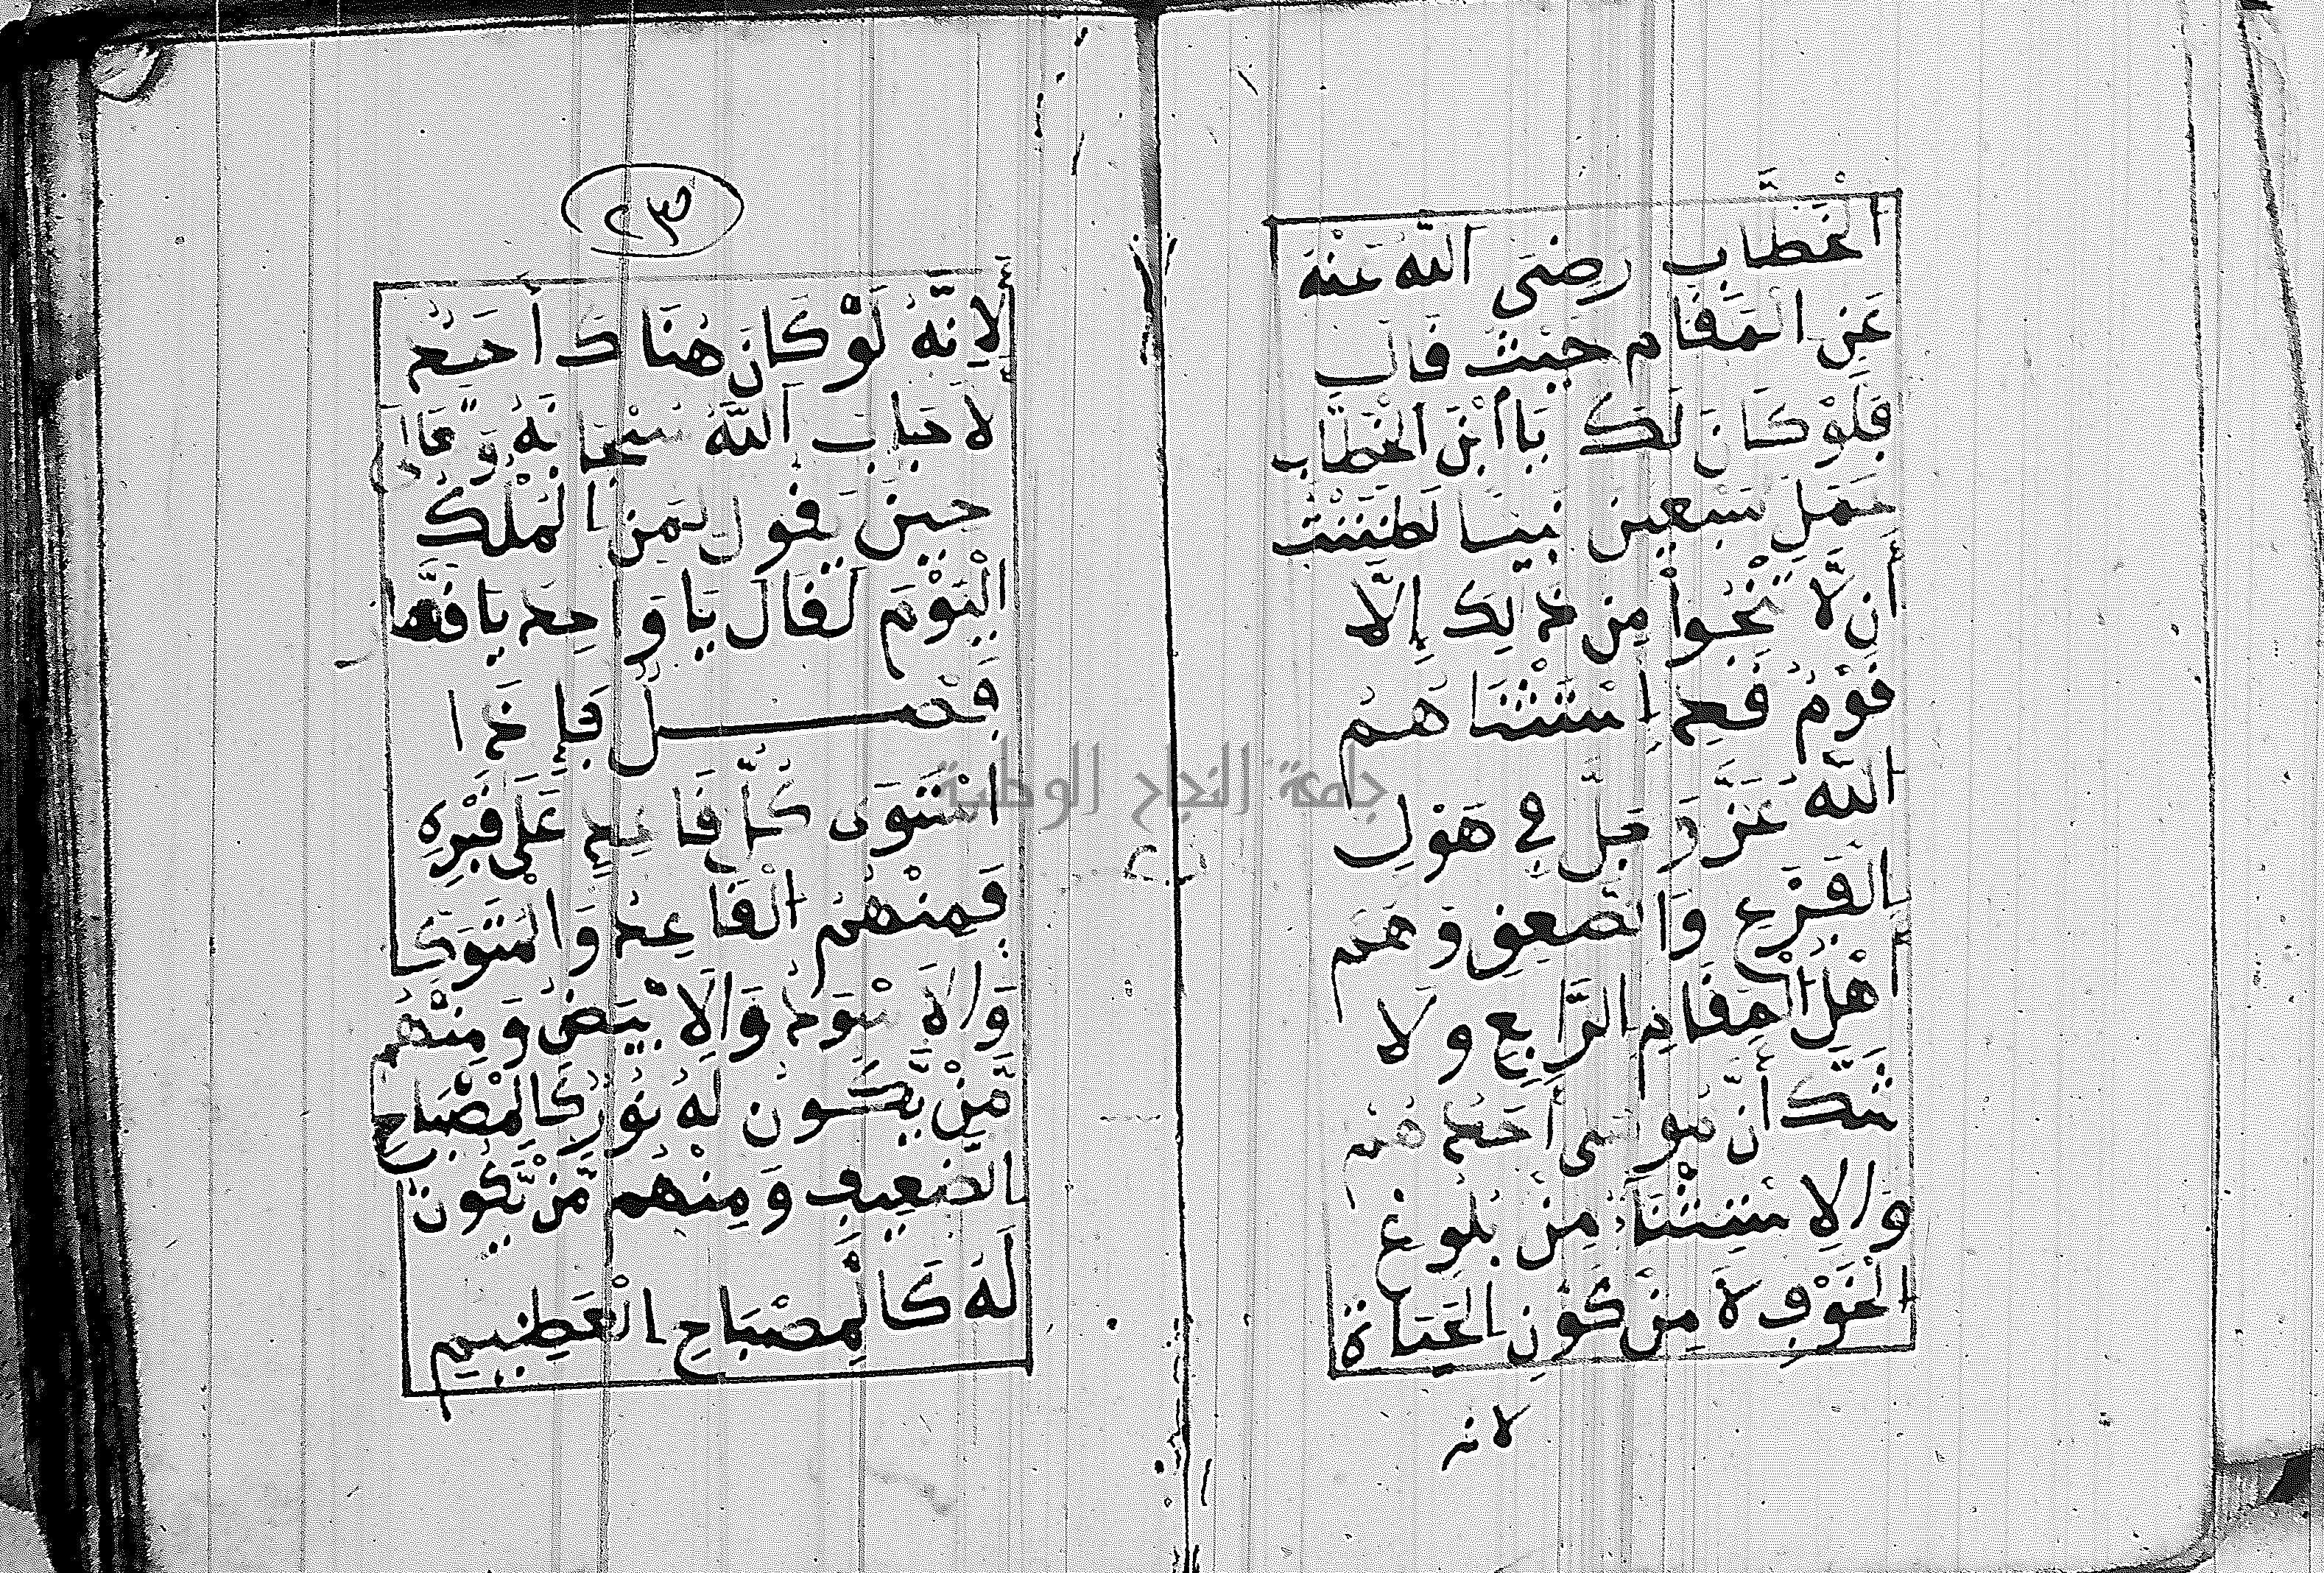 الْخَطَّابِ رضي الله عنه
عَنِ الْمَقَامِ حَيْثُ قَالَ
فَلَوْ كَانَ لَكَ يَا ابْنَ الْخَطَّابِ
عَمَلَ سَبْعِينَ نَبِيًّا لَظَنَنْتَ
أَن لَّا تَنْجُوا مِن ذَلِكَ إِلَّا
قَوْمٌ قَدِ اسْتَثْنَاهُمُ
اللَّهُ عَزَّ وَجَلَّ فِي هَوْلِ
الْفَزَعِ وَالصَّعْقِ وَهُمْ
أَهْلُ الْمَقَامِ الرَّابِعِ وَلَا
شَكَّ أَنَّ مُوسَى أَحَدُهُمْ
وَالِاسْتِثْنَاءُ مِنْ بُلُوغِ
الْخَوْفِ لَا مِنْ كَوْنِ الْحَيَاةِ
لانه
٢٣
لِأَنَّهُ لَوْ كَانَ هُنَاكَ أَحَدٌ
لَأَجَابَ اللَّهَ سُبْحَانَهُ وَتَعَالَى
حِينَ يَقُولُ لِمَنِ الْمُلْكُ
الْيَوْمَ لَقَالَ يَا وَاحِدُ يَا قَهَّار
فَصْلٌ فَإِذَا
اسْتَوَى كُلُّ قَاعِدٍ عَلَى قَبْرِهِ
فَمِنْهُمُ الْقَاعِدُ وَالْمُسْتَوِي
وَالْأَسْوَدُ وَالْأَبْيَضُ وَمِنْهُم
مَّنْ يَّكُونُ لَهُ نُورٌ كَالْمِصْبَاحِ
الضَّعِيفِ وَمِنْهُم مَّنْ يَّكُونُ
لَهُ كَالْمِصْبَاحِ الْعَظِيمِ
جامعة النجاح الوطنية